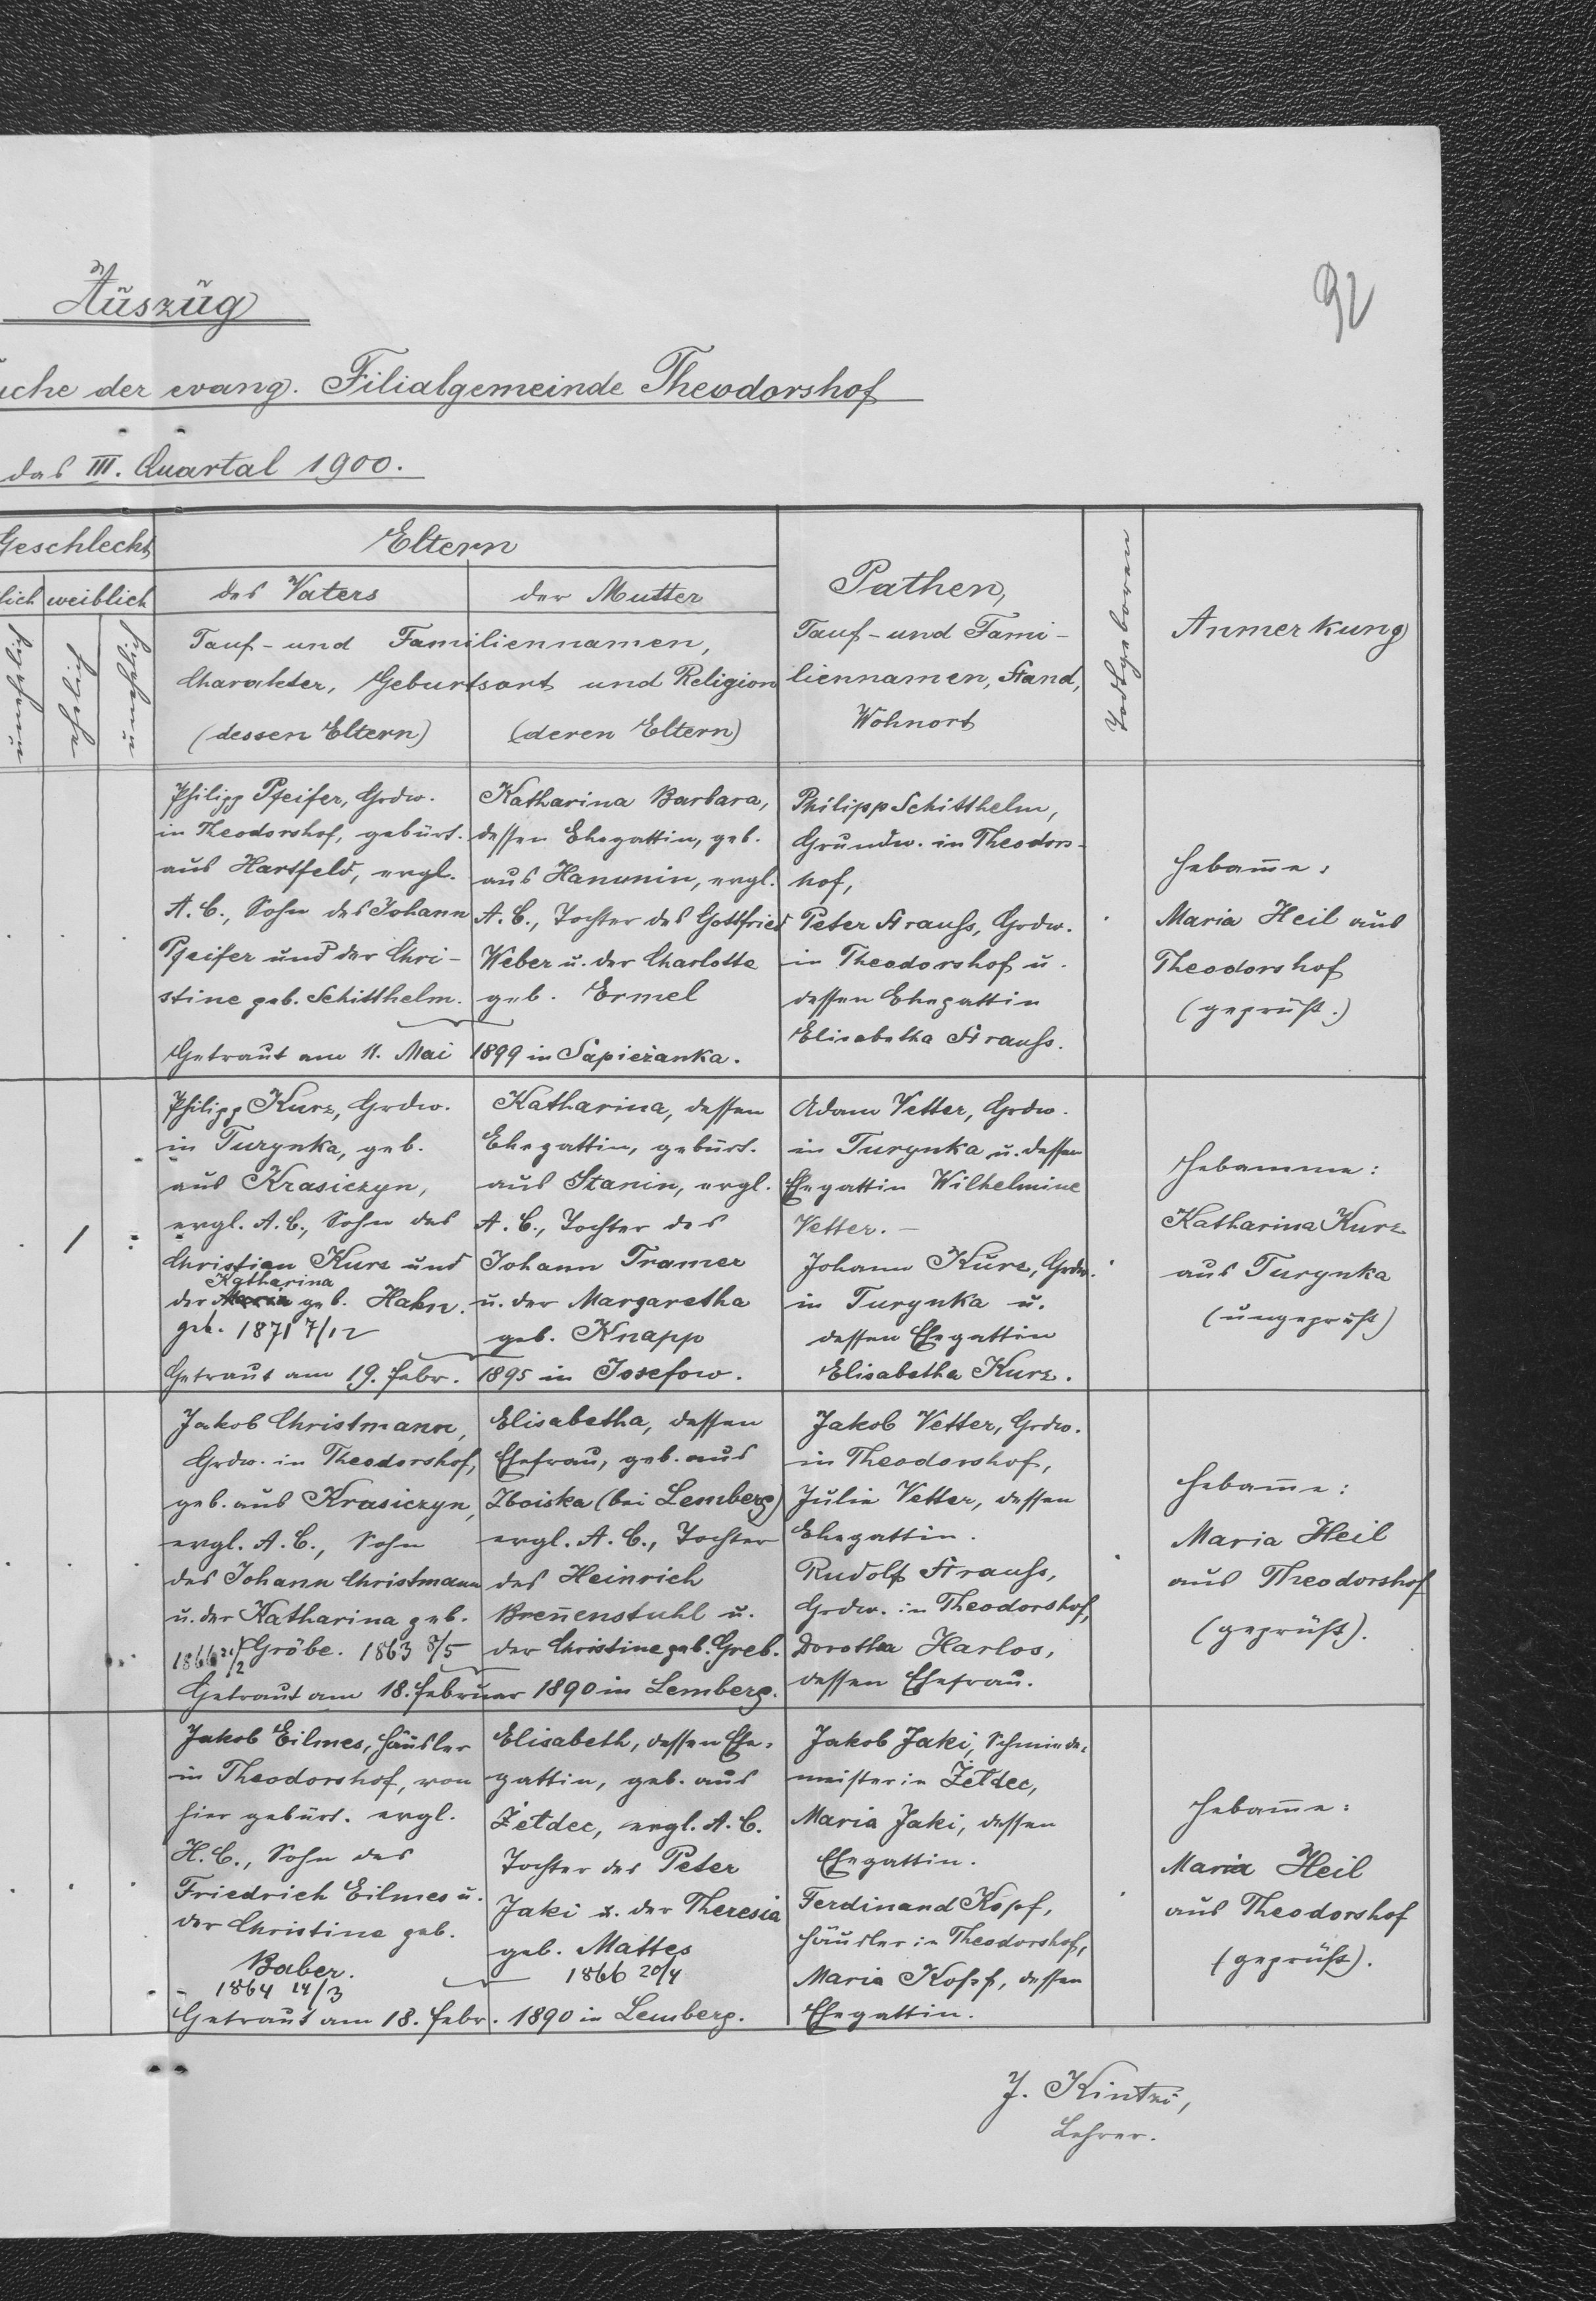 Auszug
92
der evang. Filialgemeinde Theodorshof
das III. Quartal 1900.
Geschlecht
Eltern
Pathen,
Tauf- und Fami-
liennamen, Stand,
Wohnort
Todtgeboren
Anmerkung
lich weiblich
des Vaters
der Mutter
unehelich
ehelich
unehelich
Tauf- und Familiennamen,
Charakter, Geburtsort und Religion
(dessen Eltern)
(deren Eltern)
Philipp Pfeifer, Grdw.
in Theodorshof, gebürt.
aus Hartfeld, evgl.
A. C., Sohn des Johann
Pfeifer und der Chri-
stine geb. Schitthelm.
Katharina Barbara,
dessen Ehegattin, geb.
aus Hanunin, evgl.
A. C., Tochter des Gottfried
Weber u. der Charlotte
geb. Ermel
Getraut am 11. Mai 1899 in Sapieżanka.
Philipp Schitthelm,
Grundw. in Theodors-
hof,
Peter Strauß, Grdw.
in Theodorshof u.
dessen Ehegattin
Elisabetha Strauß.
Hebam̅e:
Maria Heil aus
Theodorshof
(geprüft.)
1
Philipp Kurz, Grdw.
in Turynka, geb.
aus Krasiczyn,
evgl. A. C., Sohn des
Christian Kurz und
Katharina
der Maria geb. Hahn.
geb. 1871 7/12
Katharina, dessen
Ehegattin, gebürt.
aus Stanin, evgl.
A. C., Tochter des
Johann Tramer
u. der Margaretha
geb. Knapp
Getraut am 19. Febr. 1895 in Josefow.
Adam Vetter, Grdw.
in Turynka u. dessen
Ehegattin Wilhelmine
Vetter. –
Johann Kurz, Grdw.
in Turynka u.
dessen Ehegattin
Elisabetha Kurz.
Hebamme:
Katharina Kurz
aus Turynka
(ungeprüft)
Jakob Christmann,
Grdw. in Theodorshof,
geb. aus Krasiczyn,
evgl. A. C., Sohn
des Johann Christmann
u. der Katharina geb.
1866 21/2 Gröbe. 1863 8/5
Elisabetha, dessen
Ehefrau, geb. aus
Zboiska (bei Lemberg)
evgl. A. C., Tochter
des Heinrich
Bren̅enstuhl u.
der Christine geb. Greb.
Getraut am 18. Februar 1890 in Lemberg.
Jakob Vetter, Grdw.
in Theodorshof,
Julie Vetter, dessen
Ehegattin.
Rudolf Strauß,
Grdw. in Theodorshof,
Dorothea Harlos,
dessen Ehefrau.
Hebam̅e:
Maria Heil
aus Theodorshof
(geprüft).
Jakob Eilmes, Häusler
in Theodorshof, von
hier gebürt. evgl.
H. C., Sohn des
Friedrich Eilmes u.
der Christine geb.
Baber.
1864 14/3
Elisabeth, dessen Ehe-
gattin, geb. aus
Żełdec, evgl. A. C.
Tochter des Peter
Jaki u. der Theresia
geb. Mattes
1866 20/4
Getraut am 18. Febr. 1890 in Lemberg.
Jakob Jaki, Schmiede-
meister in Żełdec,
Maria Jaki, dessen
Ehegattin.
Ferdinand Kopf,
Häusler in Theodorshof,
Maria Kopf, dessen
Ehegattin.
Hebam̅e:
Maria Heil
aus Theodorshof
(geprüft).
J. Kintzi,
Lehrer.